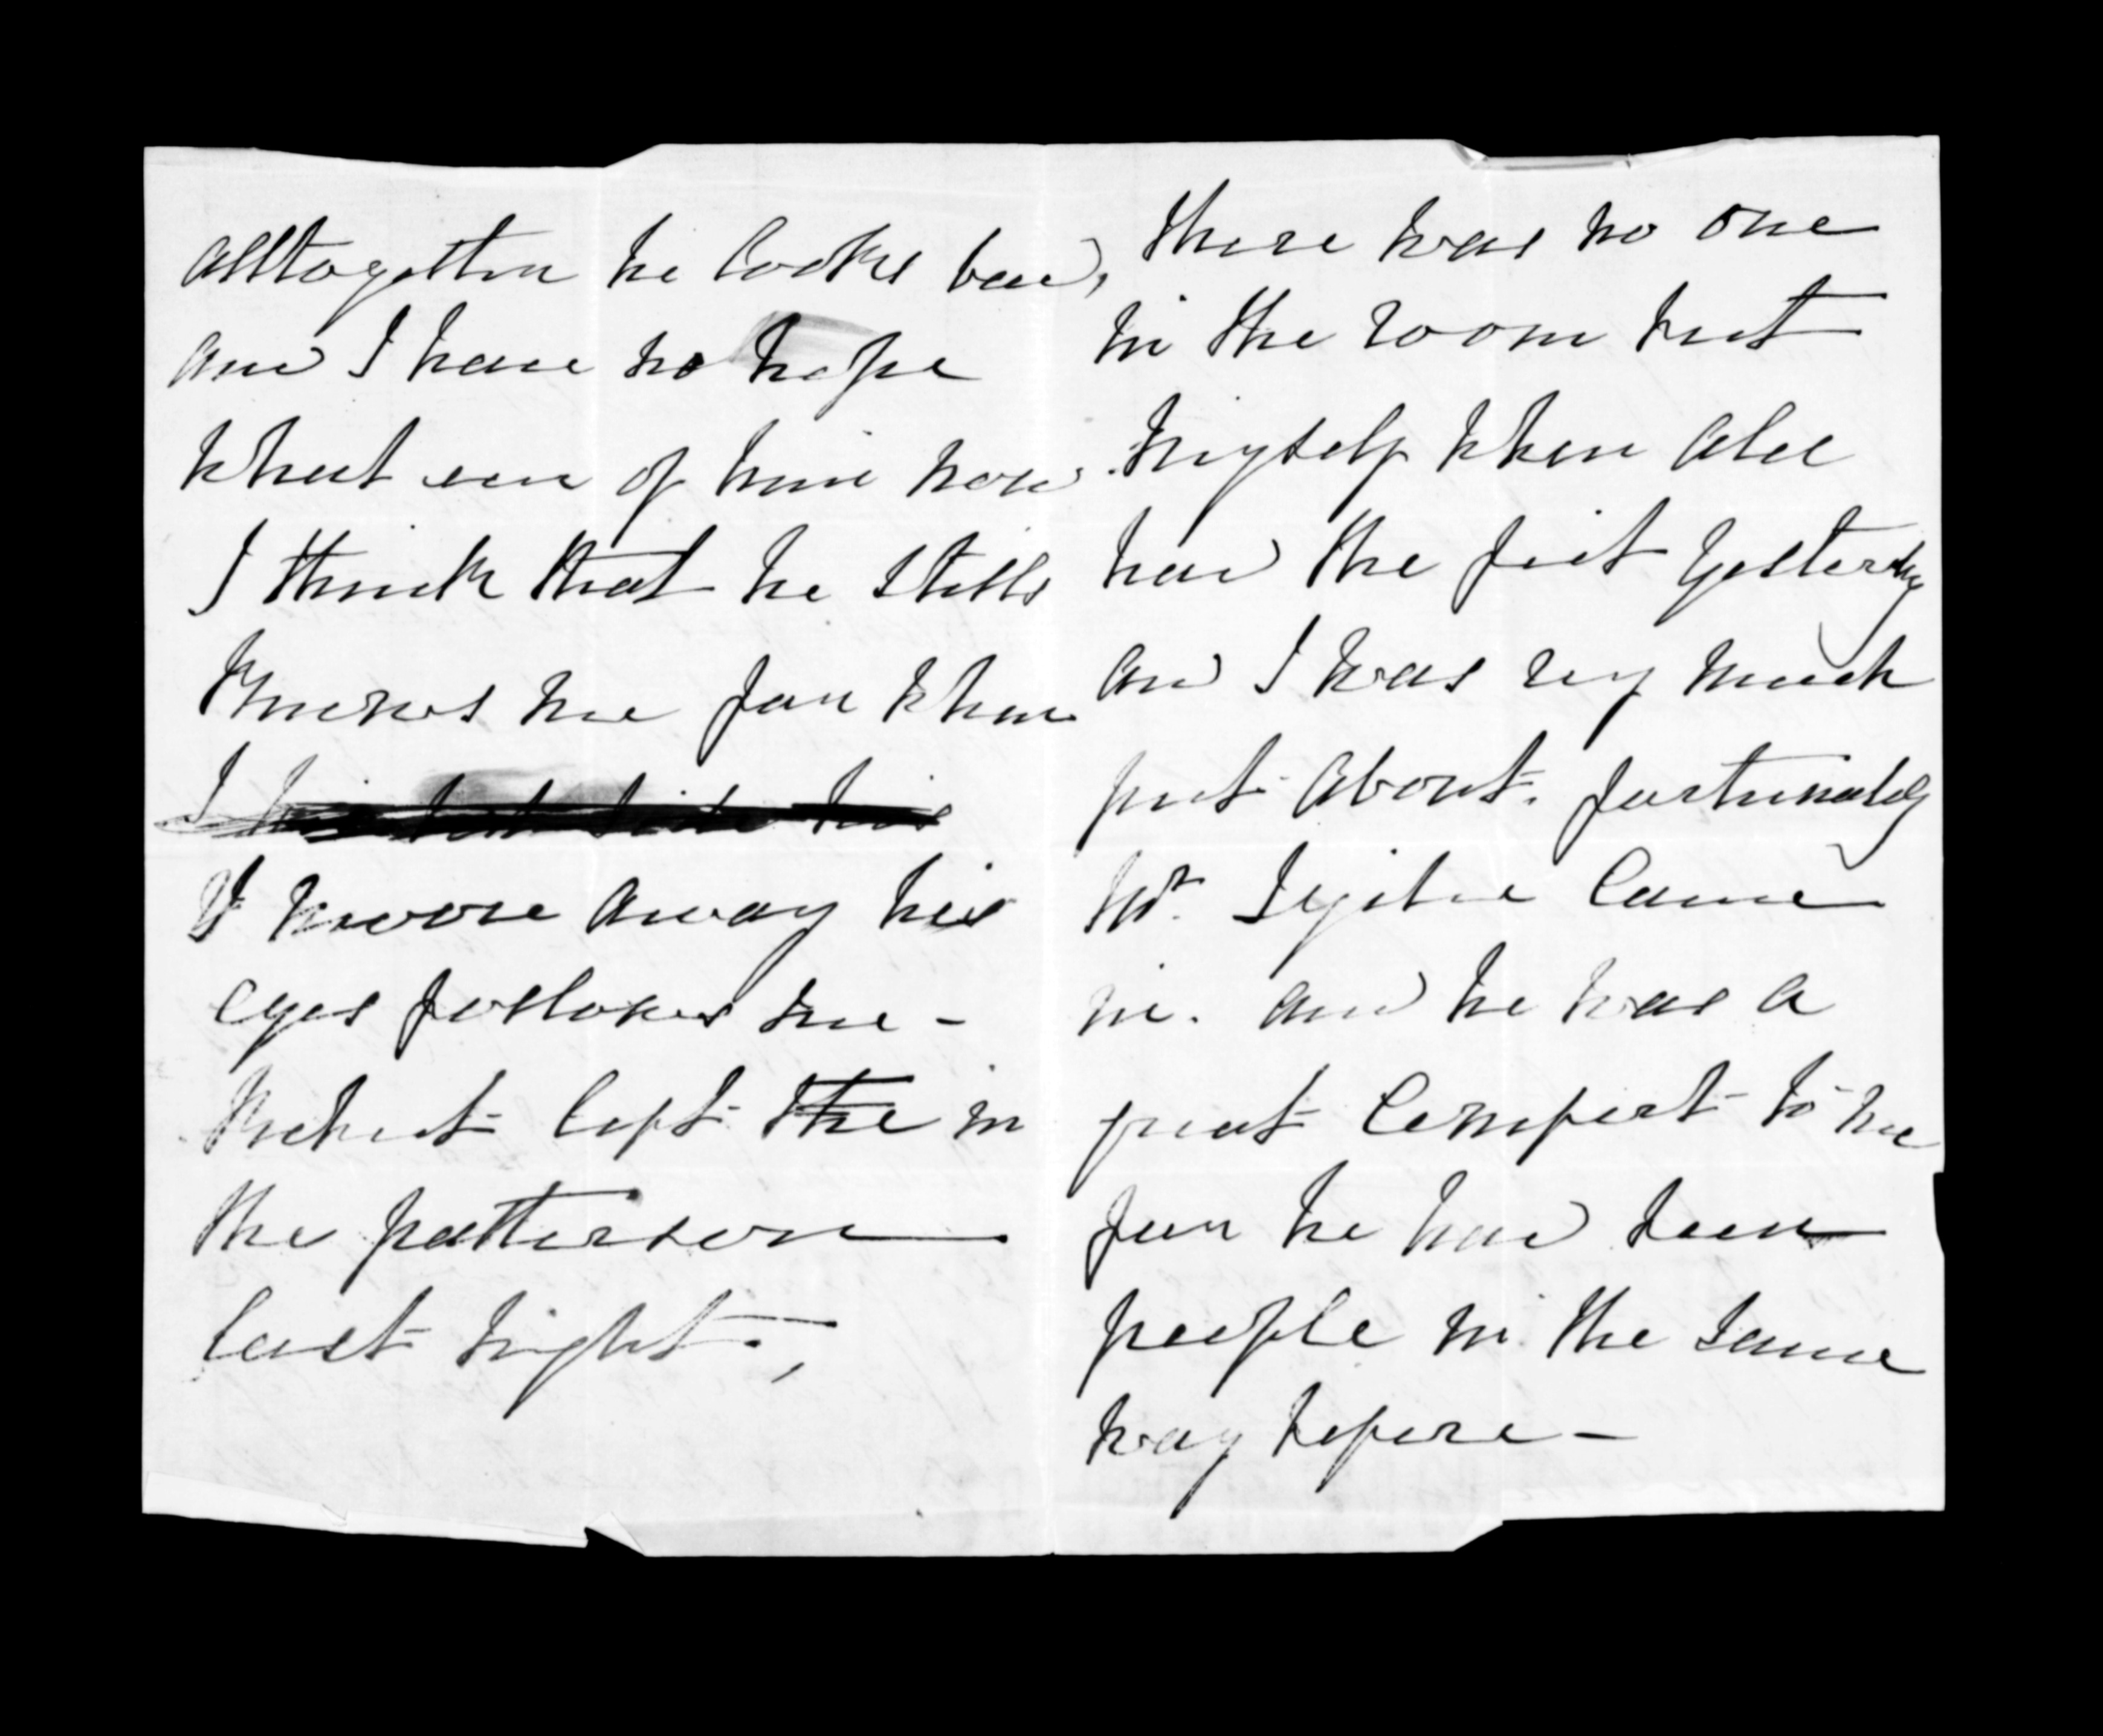 alltogether he looks bad,
and I have no hope
what ever of him now
I think that he still
knows me for when
I
I moove away his
eyes follows me -
left the in
the patterson
last night,
there was no one
in the room but
myself when Alec
had the fit yesterday
and I was very much
put about. fortunately
Mr. came
in. and he was a
great comfort to me
for he had seen
people in the same
way before -